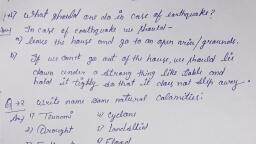 Q→1) What should one do in case of earthquake?
Ans) In case of earthquake we should -
a) leave the house and go to an open area/grounds.
b) If we can't go out of the house, we should lie
down under a strong thing like table and
hold it tightly so that it does not slip away.
Q→2 Write name some natural calamities:
Ans) 1) Tsunami 4) Cyclone
2) Drought 5) Landslid